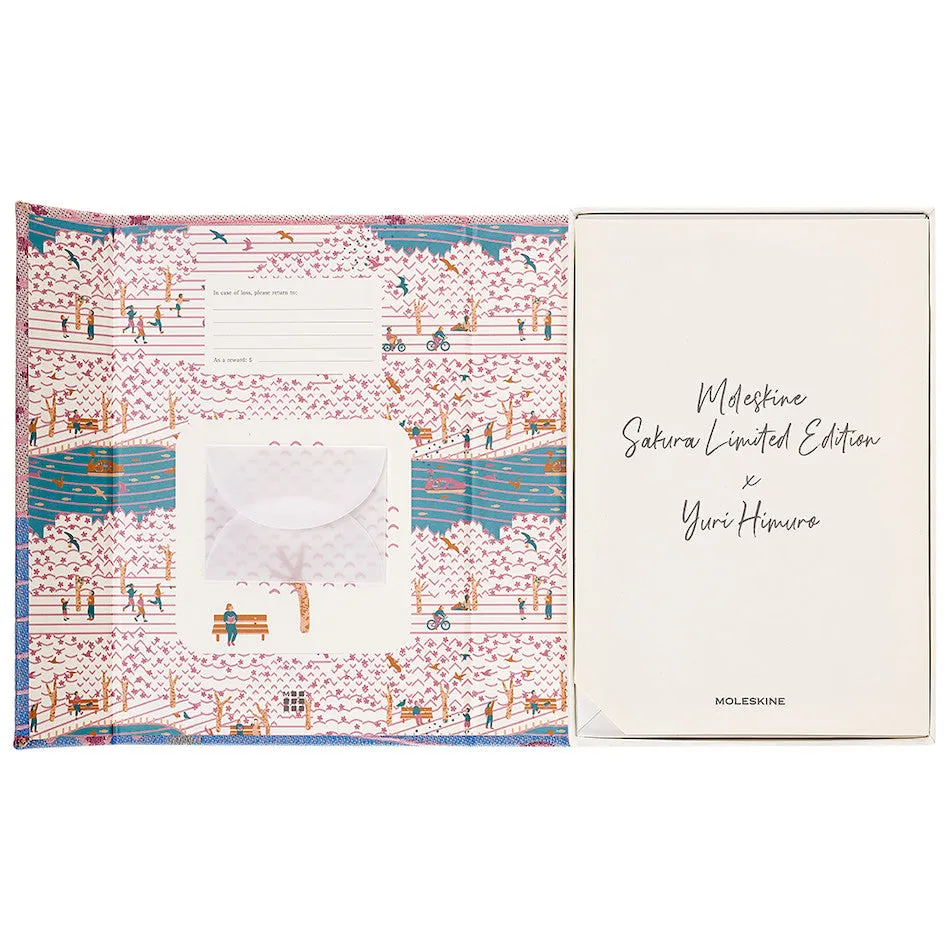 In case of loss, please return to:
As a reward: $
Moleskine
Sakura Limited Edition
x
Yuri Himuro
MOLESKINE